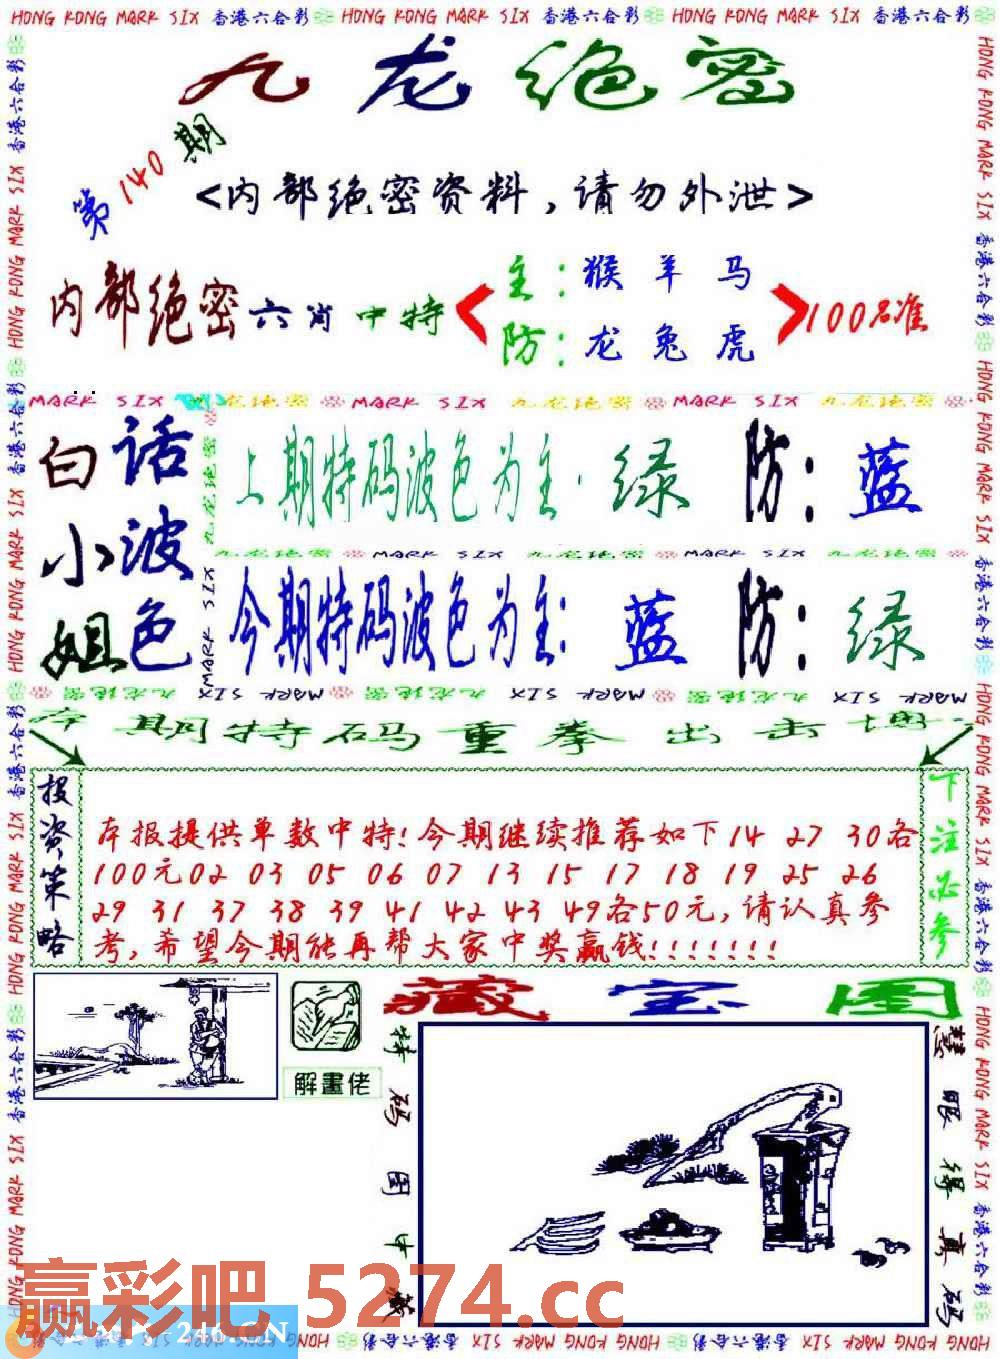 HONG KONG MARK SIX 香港六合彩 HONG KONG MARK SIX 香港六合彩 HONG KONG MARK SIX 香港六合彩
九龙绝密
第140期
<内部绝密资料,请勿外泄>
内部绝密六肖中特
主:猴羊马
防:龙兔虎
100%准
MARK SIX 九龙绝密 MARK SIX 九龙绝密 MARK SIX 九龙绝密
白小姐
话波色
上期特码波色为主·绿 防:蓝
九龙绝密 MARK SIX 九龙绝密 MARK SIX 九龙绝密
今期特码波色为主:蓝 防:绿
九龙绝密 MARK SIX 九龙绝密 MARK SIX 九龙绝密 MARK SIX
本期特码重拳出击
投资策略
本报提供单数中特!今期继续推荐如下14 27 30各
100元02 03 05 06 07 13 15 17 18 19 25 26
29 31 37 38 39 41 42 43 49各50元,请认真参
考,希望今期能再帮大家中奖赢钱!!!!!!!
下注必参
藏宝图
解畫佬
特码图中藏
慧眼得真码
赢彩吧 5274.cc
246.CN